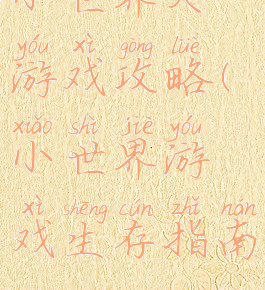 yóu xì gōng lüè
游戏攻略(
xiǎo shì jiè yóu
小世界游
xì shēng cún zhǐ nán
戏生存指南